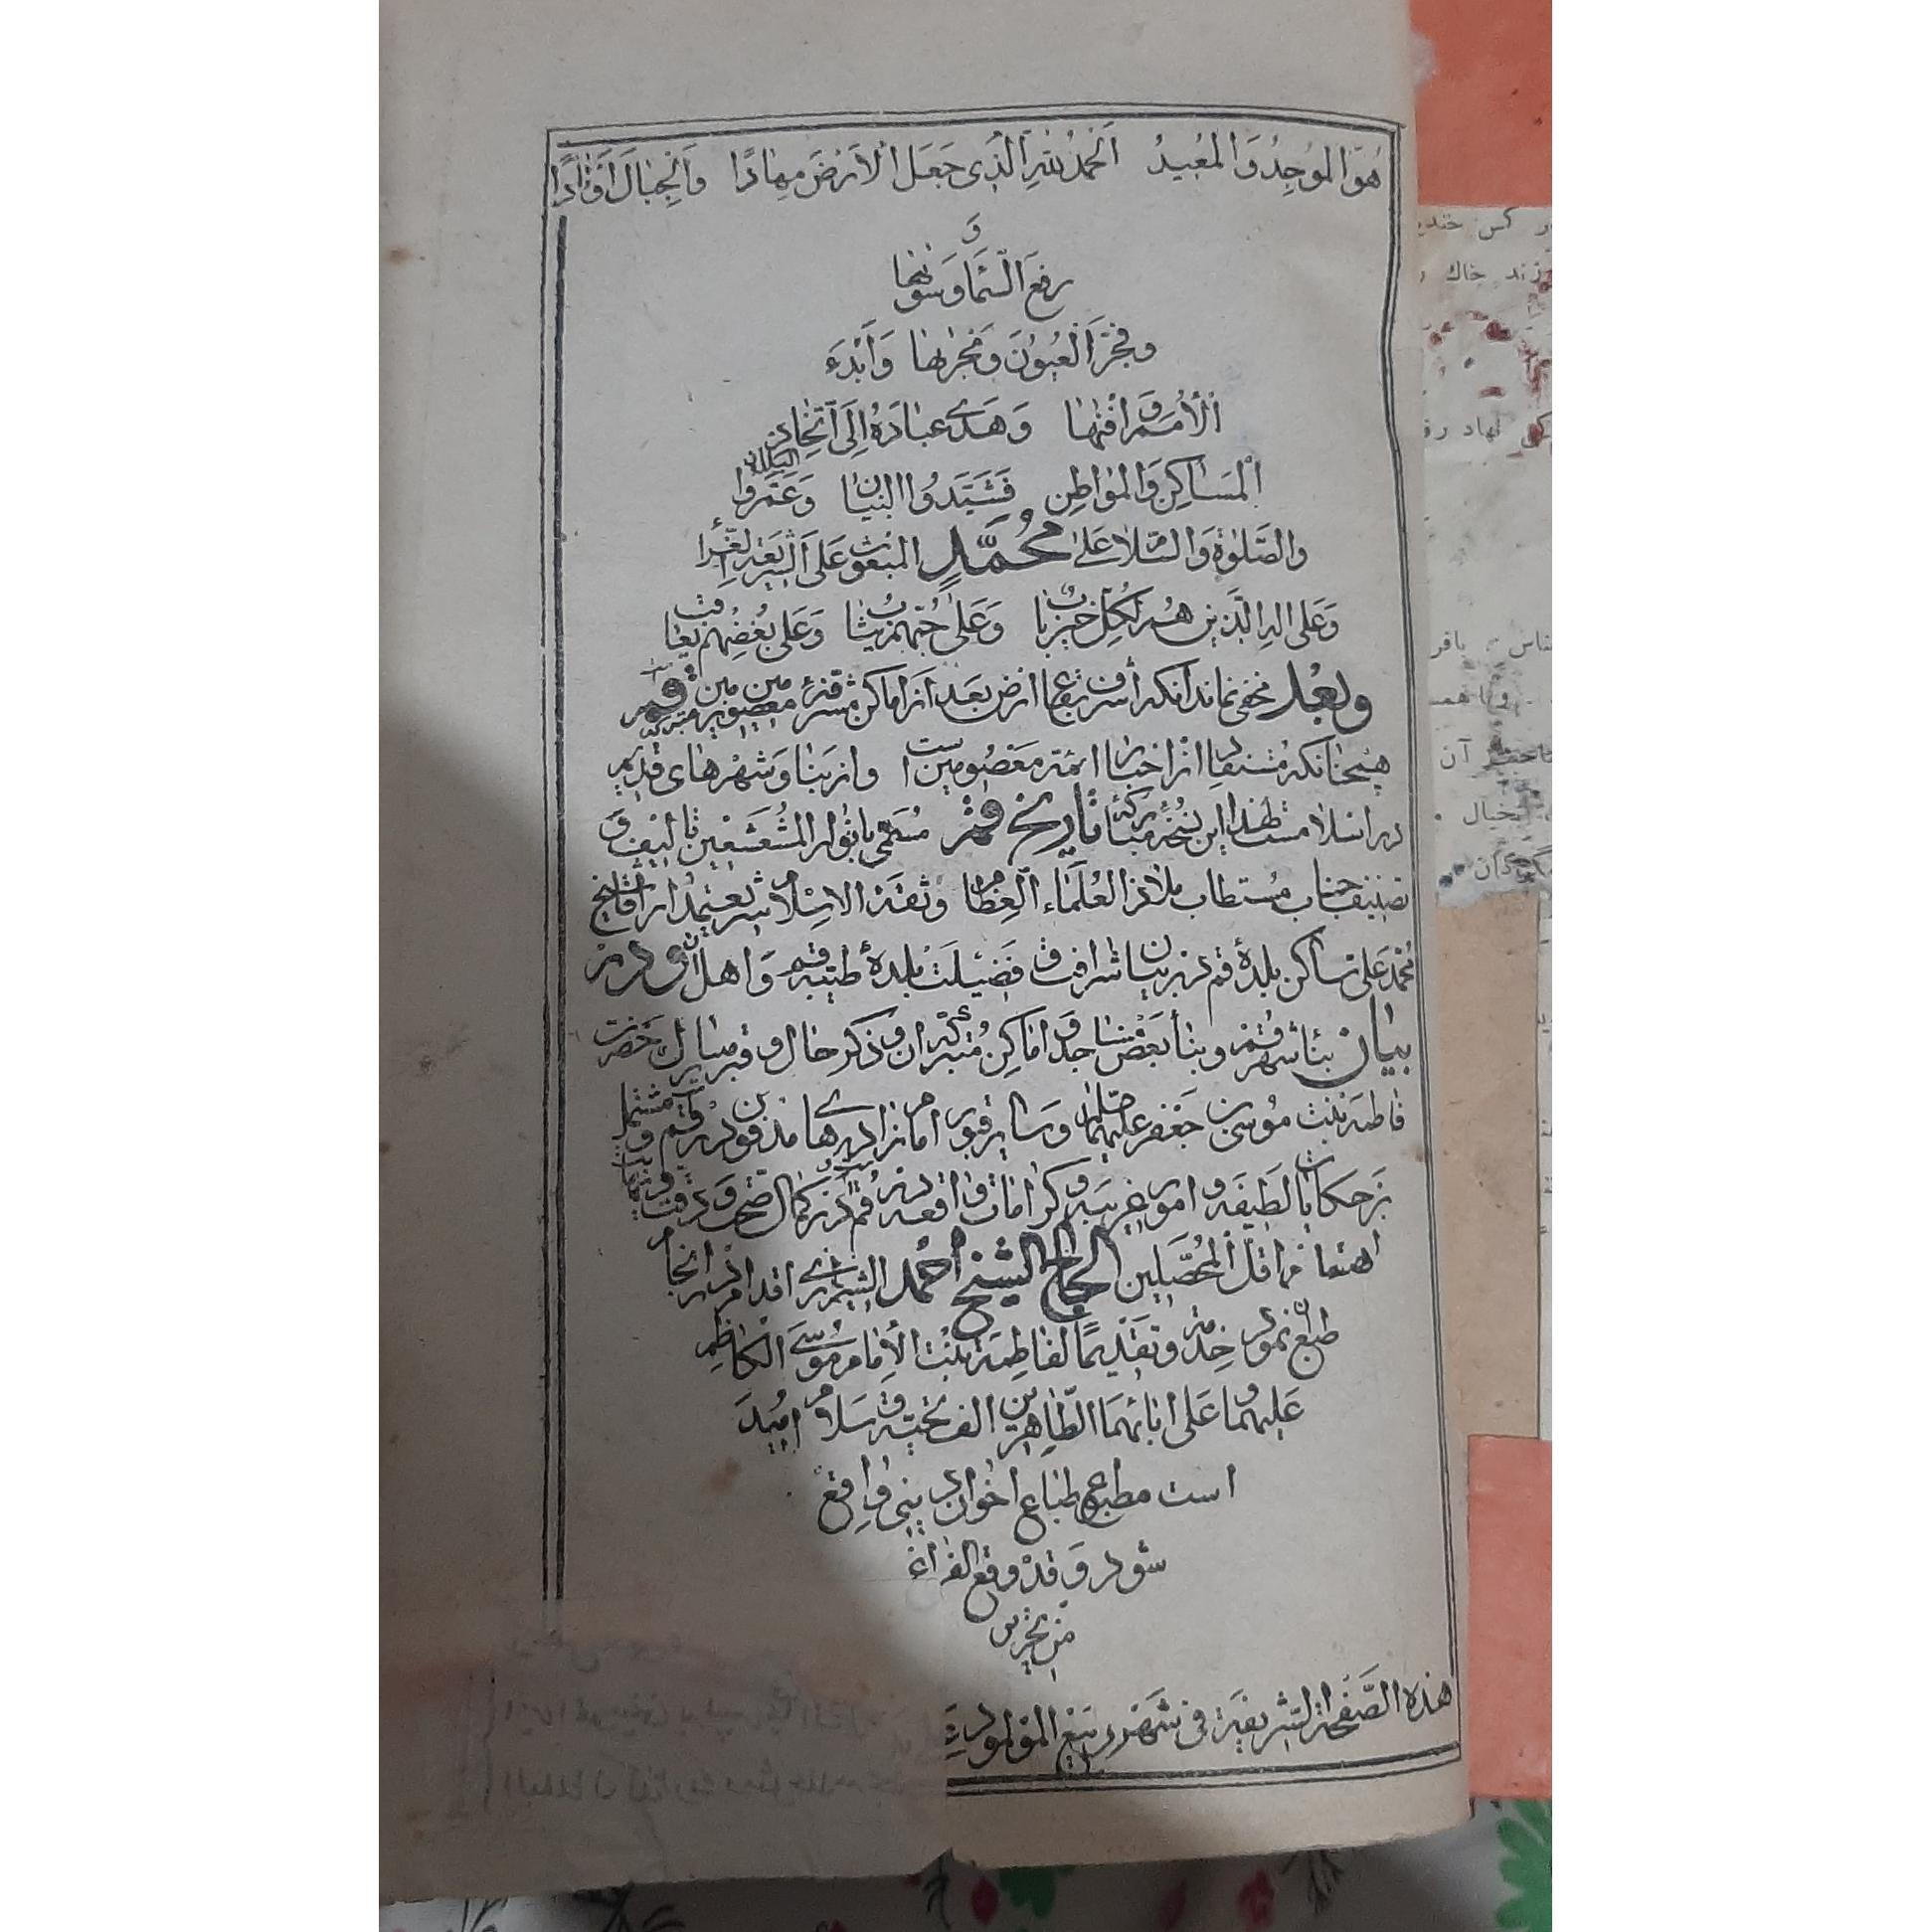 هُوَ المُوجِدُ وَالمُعیدُ اَلحَمدُ لِلّٰهِ الَّذی جَعَلَ الاَرضَ مِهادًا وَالجِبالَ اَوتادًا
وَ
رفعَ السَّمآ وَسَوّٰیها
و فَجَّرَ العُیُونَ وَ مَجرٰیها وَ اَبدَءَ
الاُمَمَ وَ اَفنٰیها وَ هَدیٰ عِبادَهُ اِلَی اتِّخاذِ
المَسَاکِنِ وَالمَواطِنِ فَشَیَّدُوا البُنیانَ وَعَمَّرُوا البُلدانَ
والصَّلوٰةُ وَالسَّلامُ عَلیٰ مُحَمَّدٍ المَبعُوثِ عَلَی الشَّریعَةِ الغَرّا
وَعَلی الِهِ الَّذینَ هُم لِکُلِّ خَیرٍ بابٌ وَعَلیٰ حُبِّهِم یُثابُ وَعَلی بُغضِهِم یعاقب
وبَعد مخفی نماند آنکه اشرف بقاع ارض بعد از اماکن مشرفهٔ معصومین زمین قم
همچنانکه مستفاد از اخبار ائمّه مَعصُومین است و از بنا و شهرهای قدیم
در اسلامست لهذا این نسخهٔ مبارکهٔ تاریخ قم مُسَمّی بانوار المُشَعشَعین تالیف و
تصنیف جناب مستطاب ملاذ العُلَمَاء العِظام و ثِقَة الاِسلام شریعتمدار اقای شیخ
مُحمّد علی ساکن بلدهٔ قم در بیان شرافت و فَضیلَت بلدهٔ طیّبه قم وَ اهل آن و در
بیان بنآ شهر قم و بنآ بعض مساجد و اماکن مُتبرّکهٔ آن و ذکر حال و قبر حضرت
فاطمه بنت مُوسی بن جَعفر علیهما وَ سایر قبور امامزاده‌های مدفون در قم و مشتمل
بر حکایات لطیفه و امور غریبه و کرامات واقعه در قم در کمال صحّت و دقت و
اهتمام اقل المُحَصّلین الحاج الشیخ احمد الشیرازی اقدام در انجام
طبع آن نمود خِدمةً و تَقدیمًا لفاطِمَة بِنتِ الاِمام مُوسَی الکاظِمِ
عَلیهما وَ عَلی ابائِهِمَا الطّاهِرینَ الف تحیّة و سَلام اُمید
است مطبوع طباع اخوان دینی واقع
شود وَ قَد وقع الفَراغ
مِن تحریر
هذه الصَّفحة الشَّریفَة فی شَهرِ رَبیع المَولود